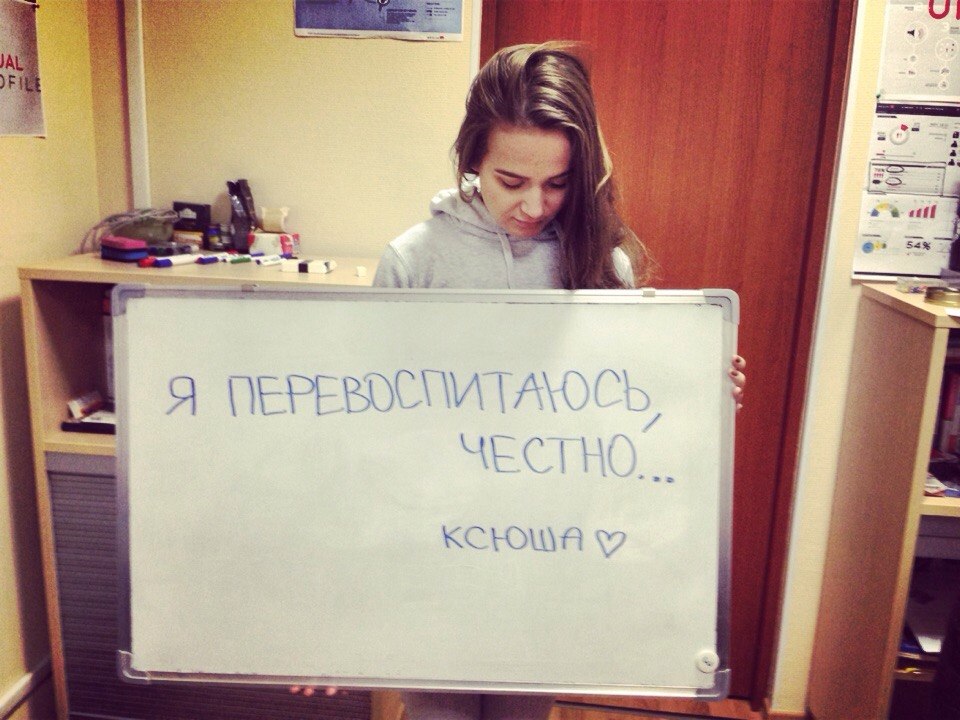 UAL
OFILE
54%
Я ПЕРЕВОСПИТАЮСЬ,
ЧЕСТНО...
КСЮША ♡